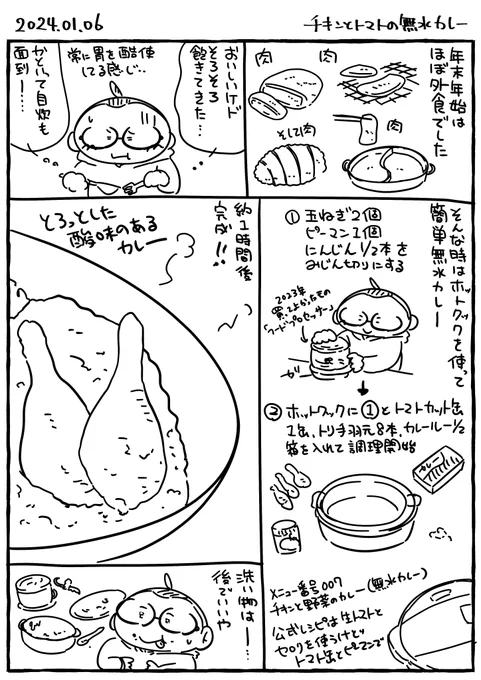 2024.01.06
チキンとトマトの無水カレー
年末年始は
ほぼ外食でした
肉
肉
肉
そして肉
おいしいケド
そろそろ
飽きてきた…
常に胃を酷使
してる感じ…
かといって自炊も
面到ー……
そんな時はホットクックを使って
簡単無水カレー
① 玉ねぎ2個
ピーマン1個
にんじん1/2本を
みじん切りにする
2023年
買ってよかったもの
「フードプロセッサー」
ガ"
② ホットクックに①とトマトカット缶
1缶、トリ手羽元8本、カレールー1/2
箱を入れて調理開始
カレー
メニュー番号007
チキンと野菜のカレー(無水カレー)
公式レシピは生トマトと
セロリを使うけど
トマト缶とピーマンで
約1時間後
完成!!
とろっとした
酸味のある
カレー
洗い物は……
後でいいや